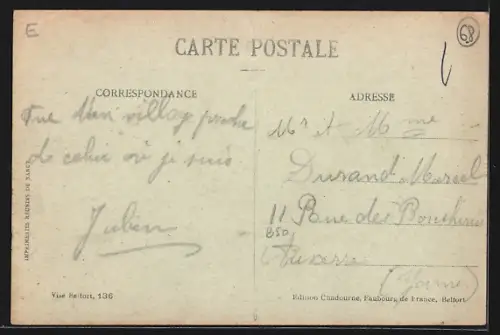 E
68
CARTE POSTALE
CORRESPONDANCE
ADRESSE
Vue d'un village proche
de celui où je suis
Julien
Mr et Mme
Durand Marcel
11 Rue des Bouchers
850
Auxerre
(Yonne)
IMPRIMERIES RÉUNIES DE NANCY
Visé Belfort, 136
Edition Chadourne, Faubourg de France, Belfort